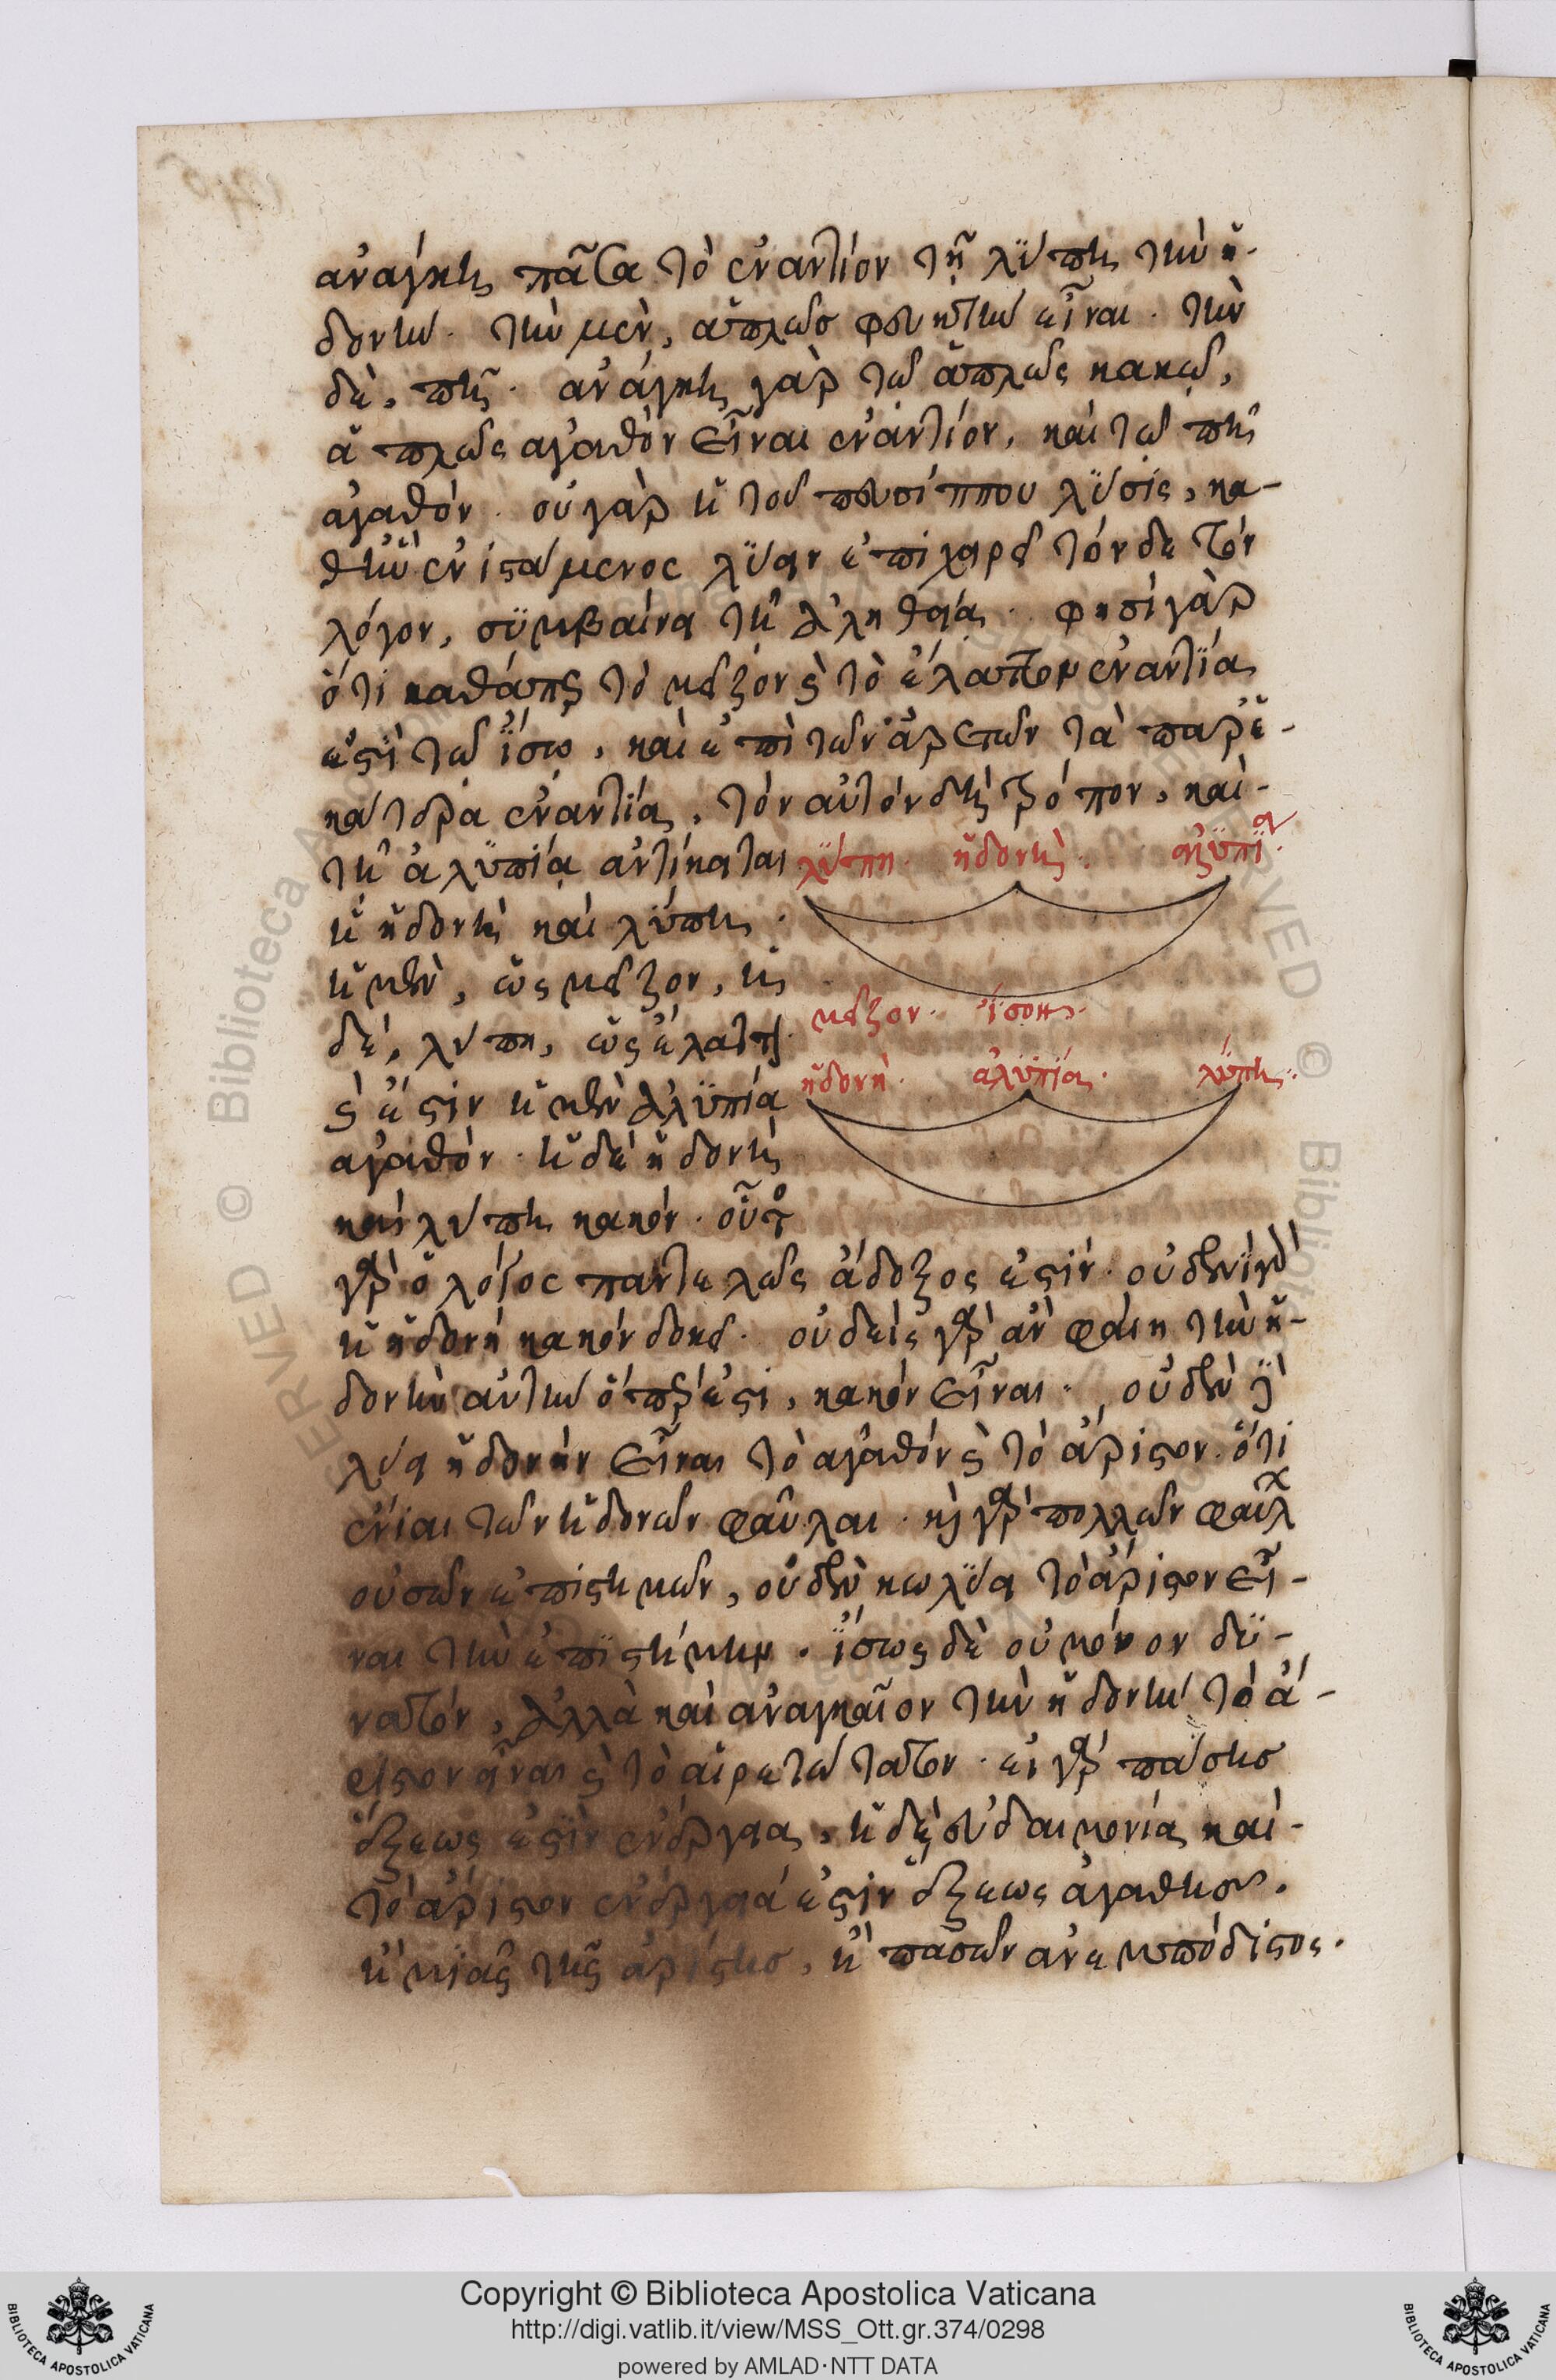 ἀνάγκη πᾶσα τὸ ἐναντίον τῇ λύπῃ τὴν ἡ-
δονήν. τὴν μὲν, ἁπλῶς φευκτὴν εἶναι. τὴν
δὲ, πῆ. ἀνάγκη γὰρ τῶ ἁπλῶς κακῶ,
ἁπλῶς ἀγαθὸν εἶναι ἐναντίον, καὶ τῶ πῆ
ἀγαθόν. οὐ γὰρ ἡ τοῦ πευσίππου λύσις, κα-
θ' ἣν ἐνιστάμενος λύειν ἐπιχειρεῖ τόνδε τὸν
λόγον, συμβαίνει τῆ ἀληθεία. φησὶ γὰρ
ὅτι καθάπερ τὸ μεῖζον καὶ τὸ ἔλαττον ἐναντία
ἐστὶ τῶ ἴσω, καὶ ἐπὶ τῶν ἀρετῶν τὰ παρ' ἑ-
κάτερα ἐναντία, τὸν αὐτὸν δὴ τρόπον, καὶ
τῆ ἀλυπία ἀντίκειται
λύπη. ἡδονὴ. ἀλυπία.
ἡ ἡδονὴ καὶ λύπη.
ἡ μὲν, ὡς μεῖζον, ἡ
μεῖζον. ἴσον.
δὲ, λύπη, ὡς ἔλαττον.
ἡδονή. ἀλυπία. λύπη.
καὶ ἔστιν ἡ μὲν ἀλυπία
ἀγαθόν. ἡ δὲ ἡδονὴ
καὶ λύπη κακόν. οὗτος
γὰρ ὁ λόγος παντελῶς ἄδοξος ἐστίν. οὐδενὶ γὰρ
ἡ ἡδονὴ κακὸν δοκεῖ. οὐδεὶς γὰρ ἂν φαίη τὴν ἡ-
δονὴν αὐτὴν ὅπερ ἐστι, κακὸν εἶναι. οὐδὲν δὲ
λύει ἡδονὴν εἶναι τὸ ἀγαθὸν καὶ τὸ ἄριστον. ὅτι
ἔνιαι τῶν ἡδονῶν φαῦλαι. καὶ γὰρ πολλῶν φαύλων
οὐσῶν ἐπιστημῶν, οὐδὲν κωλύει τὸ ἄριστον εἶ-
ναι τὴν ἐπιστήμην. ἴσως δὲ οὐ μόνον δυ-
νατόν, ἀλλὰ καὶ ἀναγκαῖον τὴν ἡδονὴν τὸ ἄ-
ριστον εἶναι καὶ τὸ αἱρετώτατον. εἰ γὰρ πάσης
ἕξεως ἐστὶν ἐνέργεια, ἡ δὲ εὐδαιμονία καὶ
τὸ ἄριστον ἐνέργειά ἐστιν ἕξεως ἀγαθῆς.
ἢ μιᾶς τῆς ἀρίστης, ἢ πασῶν ἀνεμπόδιστος.
Copyright © Biblioteca Apostolica Vaticana
http://digi.vatlib.it/view/MSS_Ott.gr.374/0298
powered by AMLAD·NTT DATA